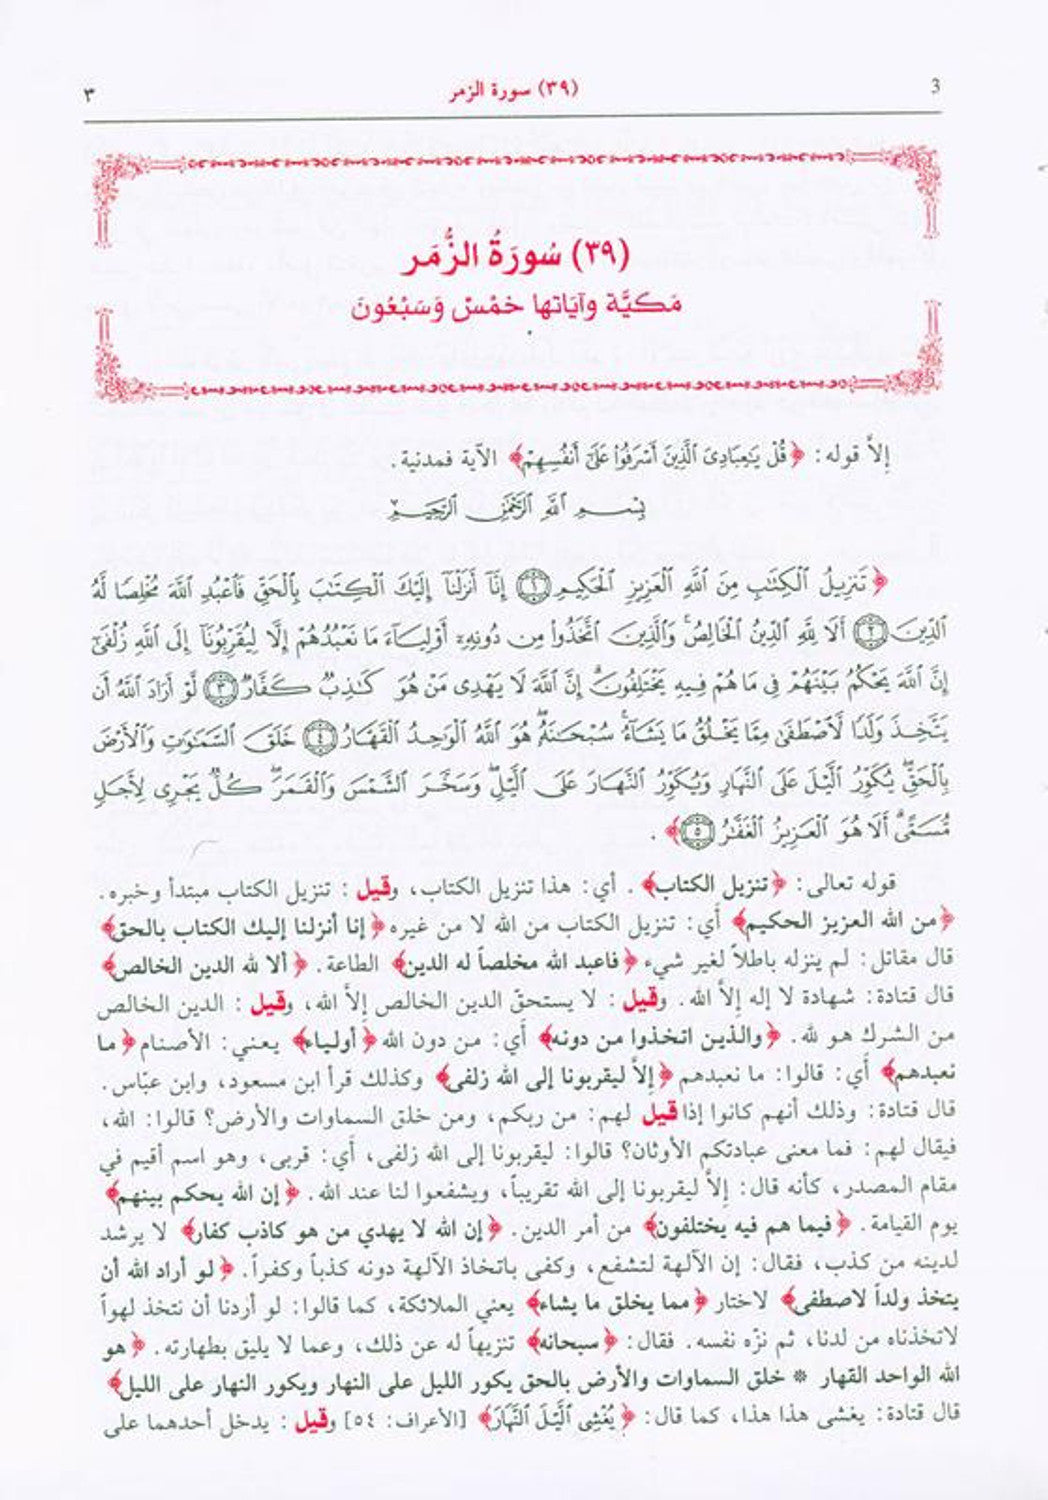 3 (٣٩) سورة الزمر ٣
(٣٩) سُورَةُ الزُّمَر
مَكيَّة وآيَاتها خمْسٌ وَسَبْعُون
إلاَّ قوله: ﴿قُلْ يَٰعِبَادِىَ ٱلَّذِينَ أَسْرَفُوا۟ عَلَىٰٓ أَنفُسِهِمْ﴾ الآية فمدنية.
بِسْمِ ٱللَّهِ ٱلرَّحْمَٰنِ ٱلرَّحِيمِ
﴿تَنزِيلُ ٱلْكِتَٰبِ مِنَ ٱللَّهِ ٱلْعَزِيزِ ٱلْحَكِيمِ ١ إِنَّآ أَنزَلْنَآ إِلَيْكَ ٱلْكِتَٰبَ بِٱلْحَقِّ فَٱعْبُدِ ٱللَّهَ مُخْلِصًا لَّهُ
ٱلدِّينَ ٢ أَلَا لِلَّهِ ٱلدِّينُ ٱلْخَالِصُ ۚ وَٱلَّذِينَ ٱتَّخَذُوا۟ مِن دُونِهِۦٓ أَوْلِيَآءَ مَا نَعْبُدُهُمْ إِلَّا لِيُقَرِّبُونَآ إِلَى ٱللَّهِ زُلْفَىٰٓ
إِنَّ ٱللَّهَ يَحْكُمُ بَيْنَهُمْ فِى مَا هُمْ فِيهِ يَخْتَلِفُونَ ۗ إِنَّ ٱللَّهَ لَا يَهْدِى مَنْ هُوَ كَٰذِبٌ كَفَّارٌ ٣ لَّوْ أَرَادَ ٱللَّهُ أَن
يَتَّخِذَ وَلَدًا لَّٱصْطَفَىٰ مِمَّا يَخْلُقُ مَا يَشَآءُ ۚ سُبْحَٰنَهُۥ ۖ هُوَ ٱللَّهُ ٱلْوَٰحِدُ ٱلْقَهَّارُ ٤ خَلَقَ ٱلسَّمَٰوَٰتِ وَٱلْأَرْضَ
بِٱلْحَقِّ ۖ يُكَوِّرُ ٱلَّيْلَ عَلَى ٱلنَّهَارِ وَيُكَوِّرُ ٱلنَّهَارَ عَلَى ٱلَّيْلِ ۖ وَسَخَّرَ ٱلشَّمْسَ وَٱلْقَمَرَ ۖ كُلٌّ يَجْرِى لِأَجَلٍ
مُّسَمًّى ۗ أَلَا هُوَ ٱلْعَزِيزُ ٱلْغَفَّٰرُ ٥﴾.
قوله تعالى: ﴿تنزيل الكتاب﴾. أي: هذا تنزيل الكتاب، وقيل: تنزيل الكتاب مبتدأ وخبره.
﴿من الله العزيز الحكيم﴾ أي: تنزيل الكتاب من الله لا من غيره ﴿إنا أنزلنا إليك الكتاب بالحق﴾
قال مقاتل: لم ينزله باطلاً لغير شيء ﴿فاعبد الله مخلصاً له الدين﴾ الطاعة. ﴿ألا لله الدين الخالص﴾
قال قتادة: شهادة لا إله إلاَّ الله. وقيل: لا يستحقّ الدين الخالص إلاَّ الله، وقيل: الدين الخالص
من الشرك هو لله. ﴿والذين اتخذوا من دونه﴾ أي: من دون الله ﴿أولياء﴾ يعني: الأصنام ﴿ما
نعبدهم﴾ أي: قالوا: ما نعبدهم ﴿إلاَّ ليقربونا إلى الله زلفى﴾ وكذلك قرأ ابن مسعود، وابن عبّاس.
قال قتادة: وذلك أنهم كانوا إذا قيل لهم: من ربكم، ومن خلق السماوات والأرض؟ قالوا: الله،
فيقال لهم: فما معنى عبادتكم الأوثان؟ قالوا: ليقربونا إلى الله زلفى، أي: قربى، وهو اسم أقيم في
مقام المصدر، كأنه قال: إلاَّ ليقربونا إلى الله تقريباً، ويشفعوا لنا عند الله. ﴿إن الله يحكم بينهم﴾
يوم القيامة. ﴿فيما هم فيه يختلفون﴾ من أمر الدين. ﴿إن الله لا يهدي من هو كاذب كفار﴾ لا يرشد
لدينه من كذب، فقال: إن الآلهة لتشفع، وكفى باتخاذ الآلهة دونه كذباً وكفراً. ﴿لو أراد الله أن
يتخذ ولداً لاصطفى﴾ لاختار ﴿مما يخلق ما يشاء﴾ يعني الملائكة، كما قالوا: لو أردنا أن نتخذ لهواً
لاتخذناه من لدنا، ثم نزّه نفسه. فقال: ﴿سبحانه﴾ تنزيهاً له عن ذلك، وعما لا يليق بطهارته. ﴿هو
الله الواحد القهار * خلق السماوات والأرض بالحق يكور الليل على النهار ويكور النهار على الليل﴾
قال قتادة: يغشى هذا هذا، كما قال: ﴿يُغْشِى ٱلَّيْلَ ٱلنَّهَارَ﴾ [الأعراف: ٥٤] وقيل: يدخل أحدهما على